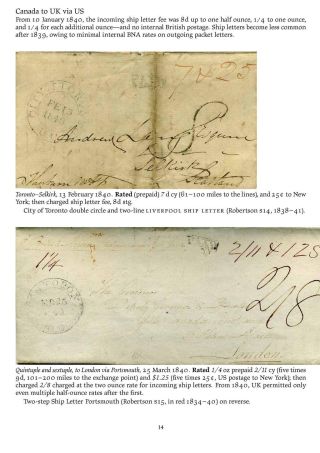 Canada to UK via US
From 10 January 1840, the incoming ship letter fee was 8d up to one half ounce, 1/4 to one ounce,
and 1/4 for each additional ounce—and no internal British postage. Ship letters become less common
after 1839, owing to minimal internal BNA rates on outgoing packet letters.
7 & 25
8
Andrew
Selkirk
Scotland
Toronto–Selkirk, 13 February 1840. Rated (prepaid) 7 d cy (61–100 miles to the lines), and 25¢ to New
York; then charged ship letter fee, 8d stg.
City of Toronto double circle and two-line LIVERPOOL SHIP LETTER (Robertson S14, 1838–41).
2/11 & 125
1/4
2/8
London
Quintuple and sextuple, to London via Portsmouth, 25 March 1840. Rated 1/4 oz prepaid 2/11 cy (five times
9d, 101–200 miles to the exchange point) and $1.25 (five times 25¢, US postage to New York); then
charged 2/8 charged at the two ounce rate for incoming ship letters. From 1840, UK permitted only
even multiple half-ounce rates after the first.
Two-step Ship Letter Portsmouth (Robertson S15, in red 1834–40) on reverse.
14